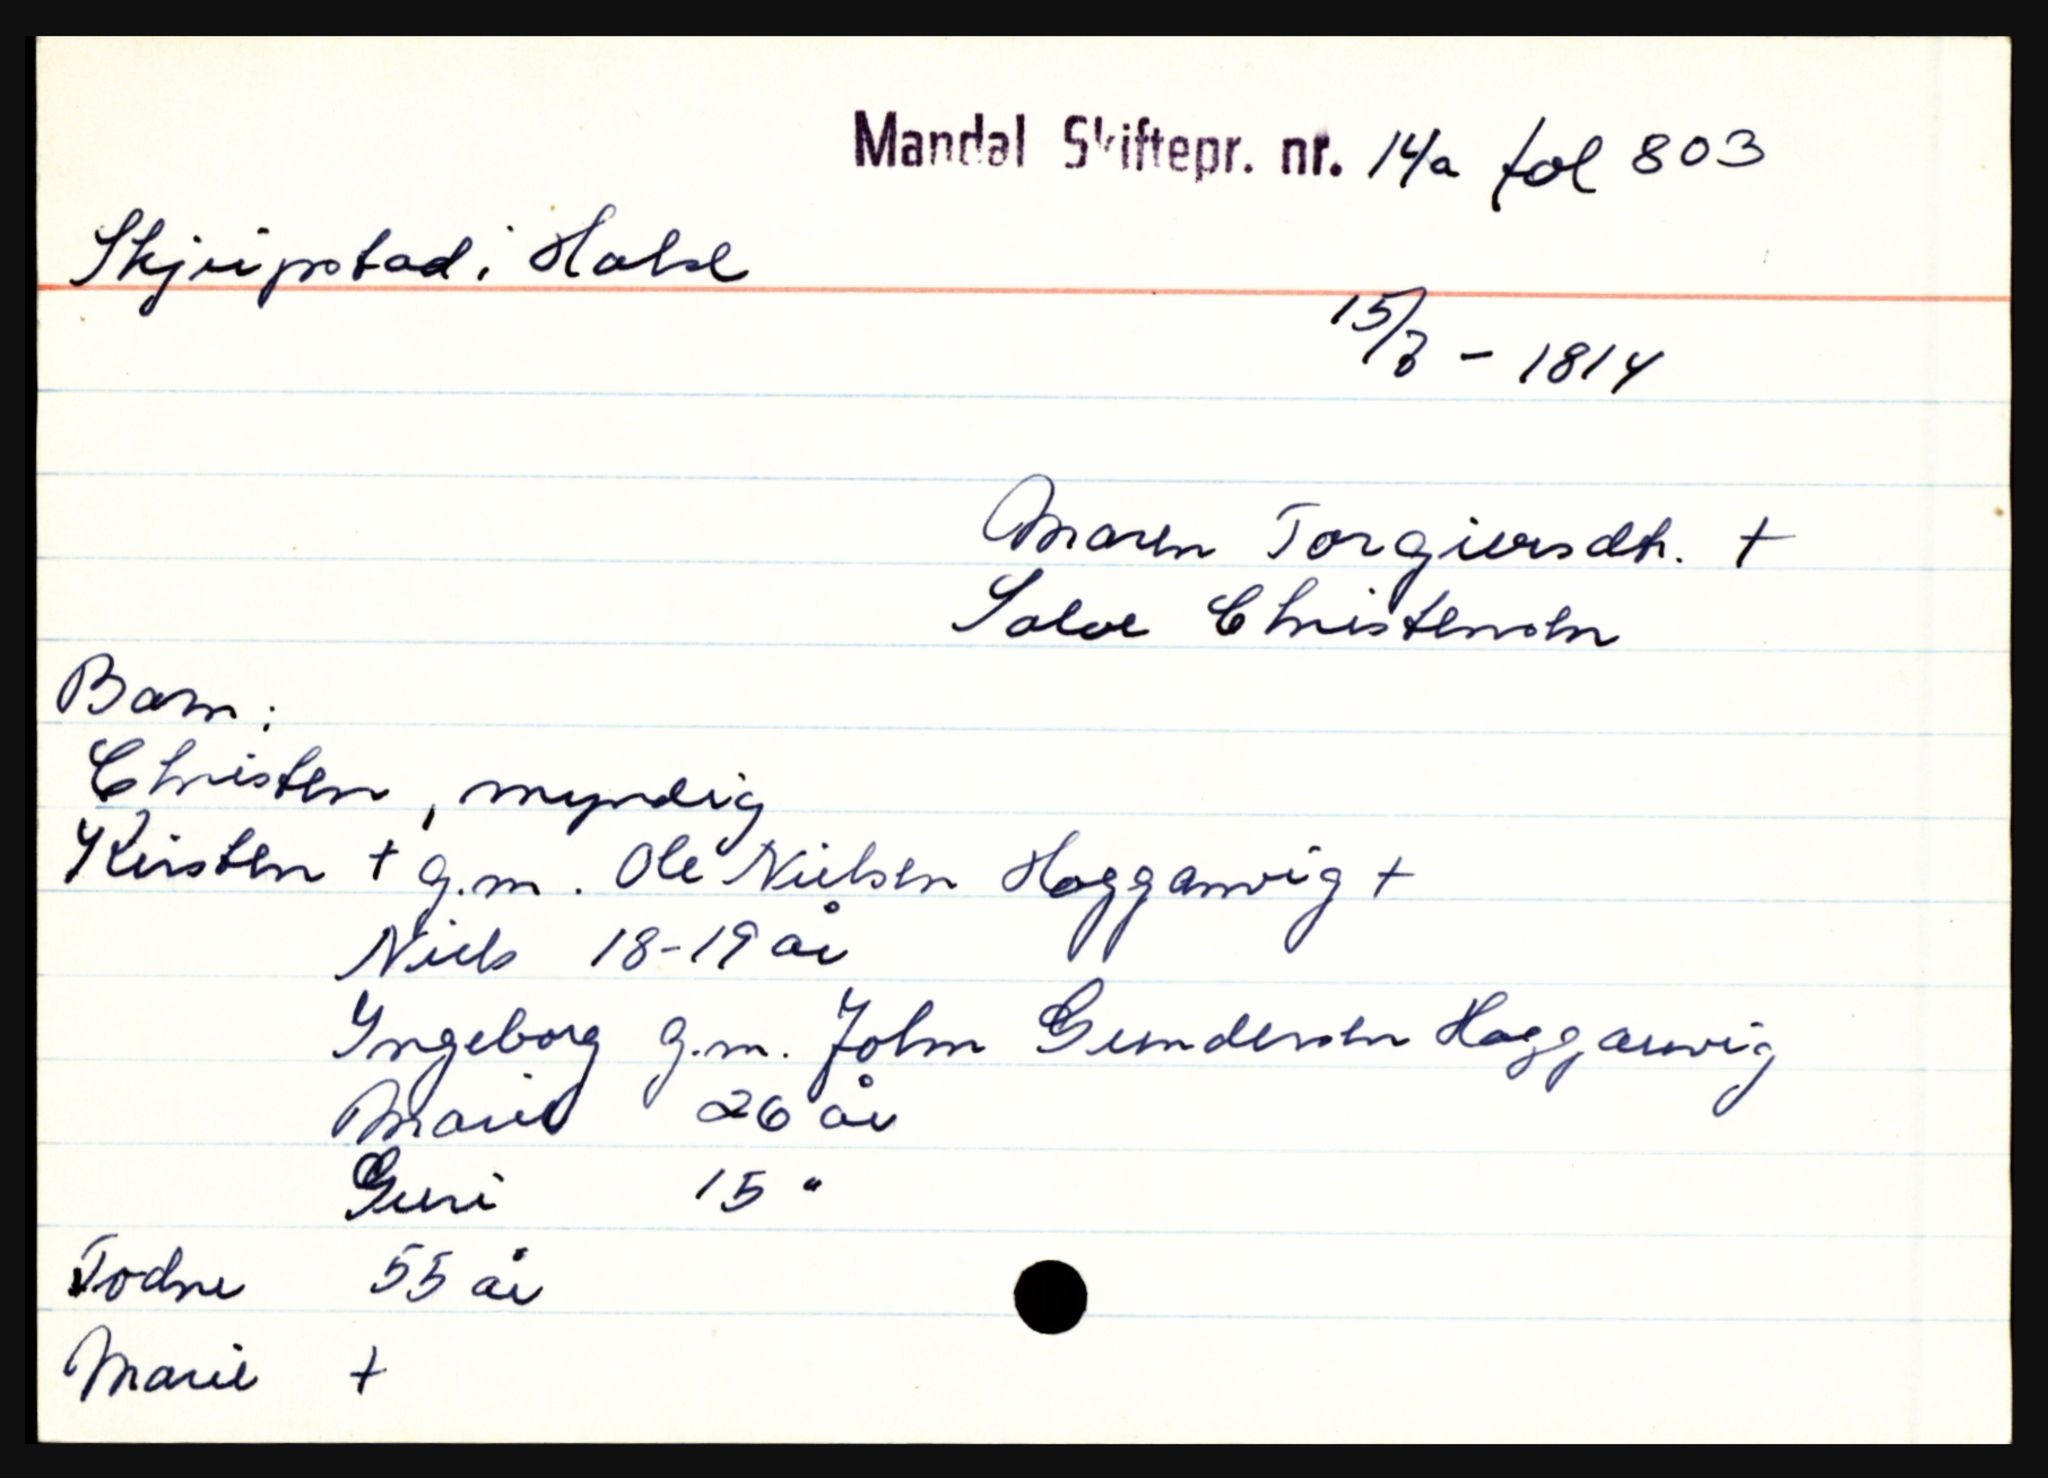 Mandal Skiftepr. nr. 14a fol 803
Skjripstad i Halse
15/7 - 1814
Maren Torgiersdtr. +
Salve Christensen
Barn:
Christen, myndig
Kirsten + g.m. Ole Nielsen Hogganvig +
Niels 18-19 år
Yngeborg g.m. John Gundersen Hogganvig
Marie 26 år
Guri 15 "
Todne 55 år
Marie +